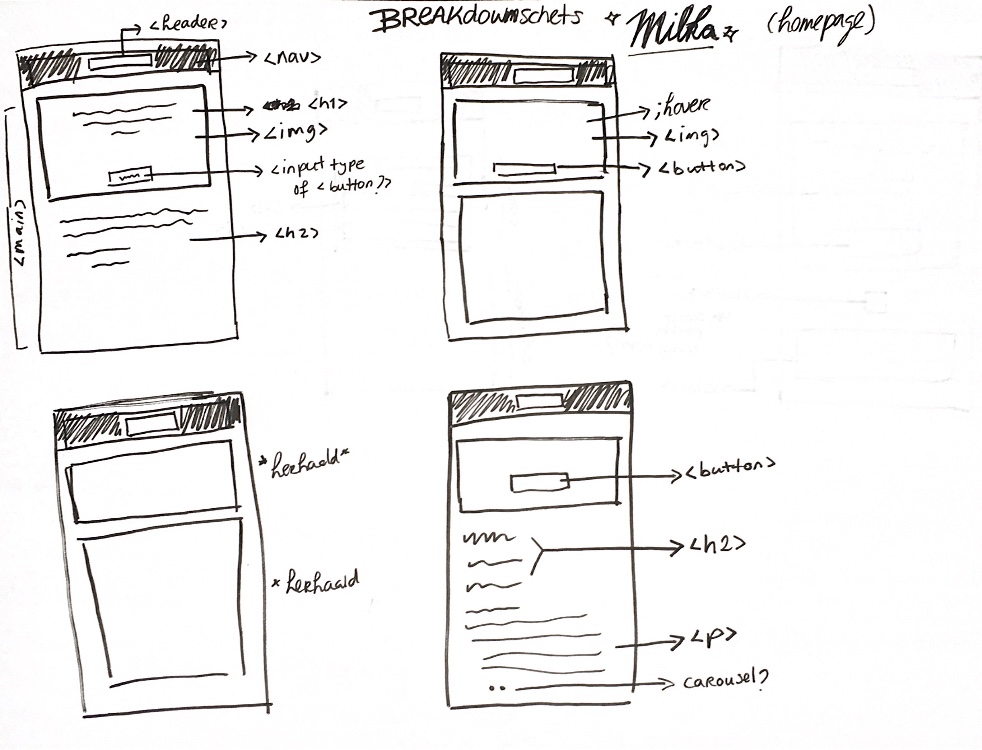 BREAKdownschets ☆ Milka ☆ (homepage)
<header>
<nav>
<h1>
<img>
<input type
of <button?>
<h2>
<main>
;hover
<img>
<button>
*herhaald*
*herhaald
<button>
<h2>
<p>
carousel?